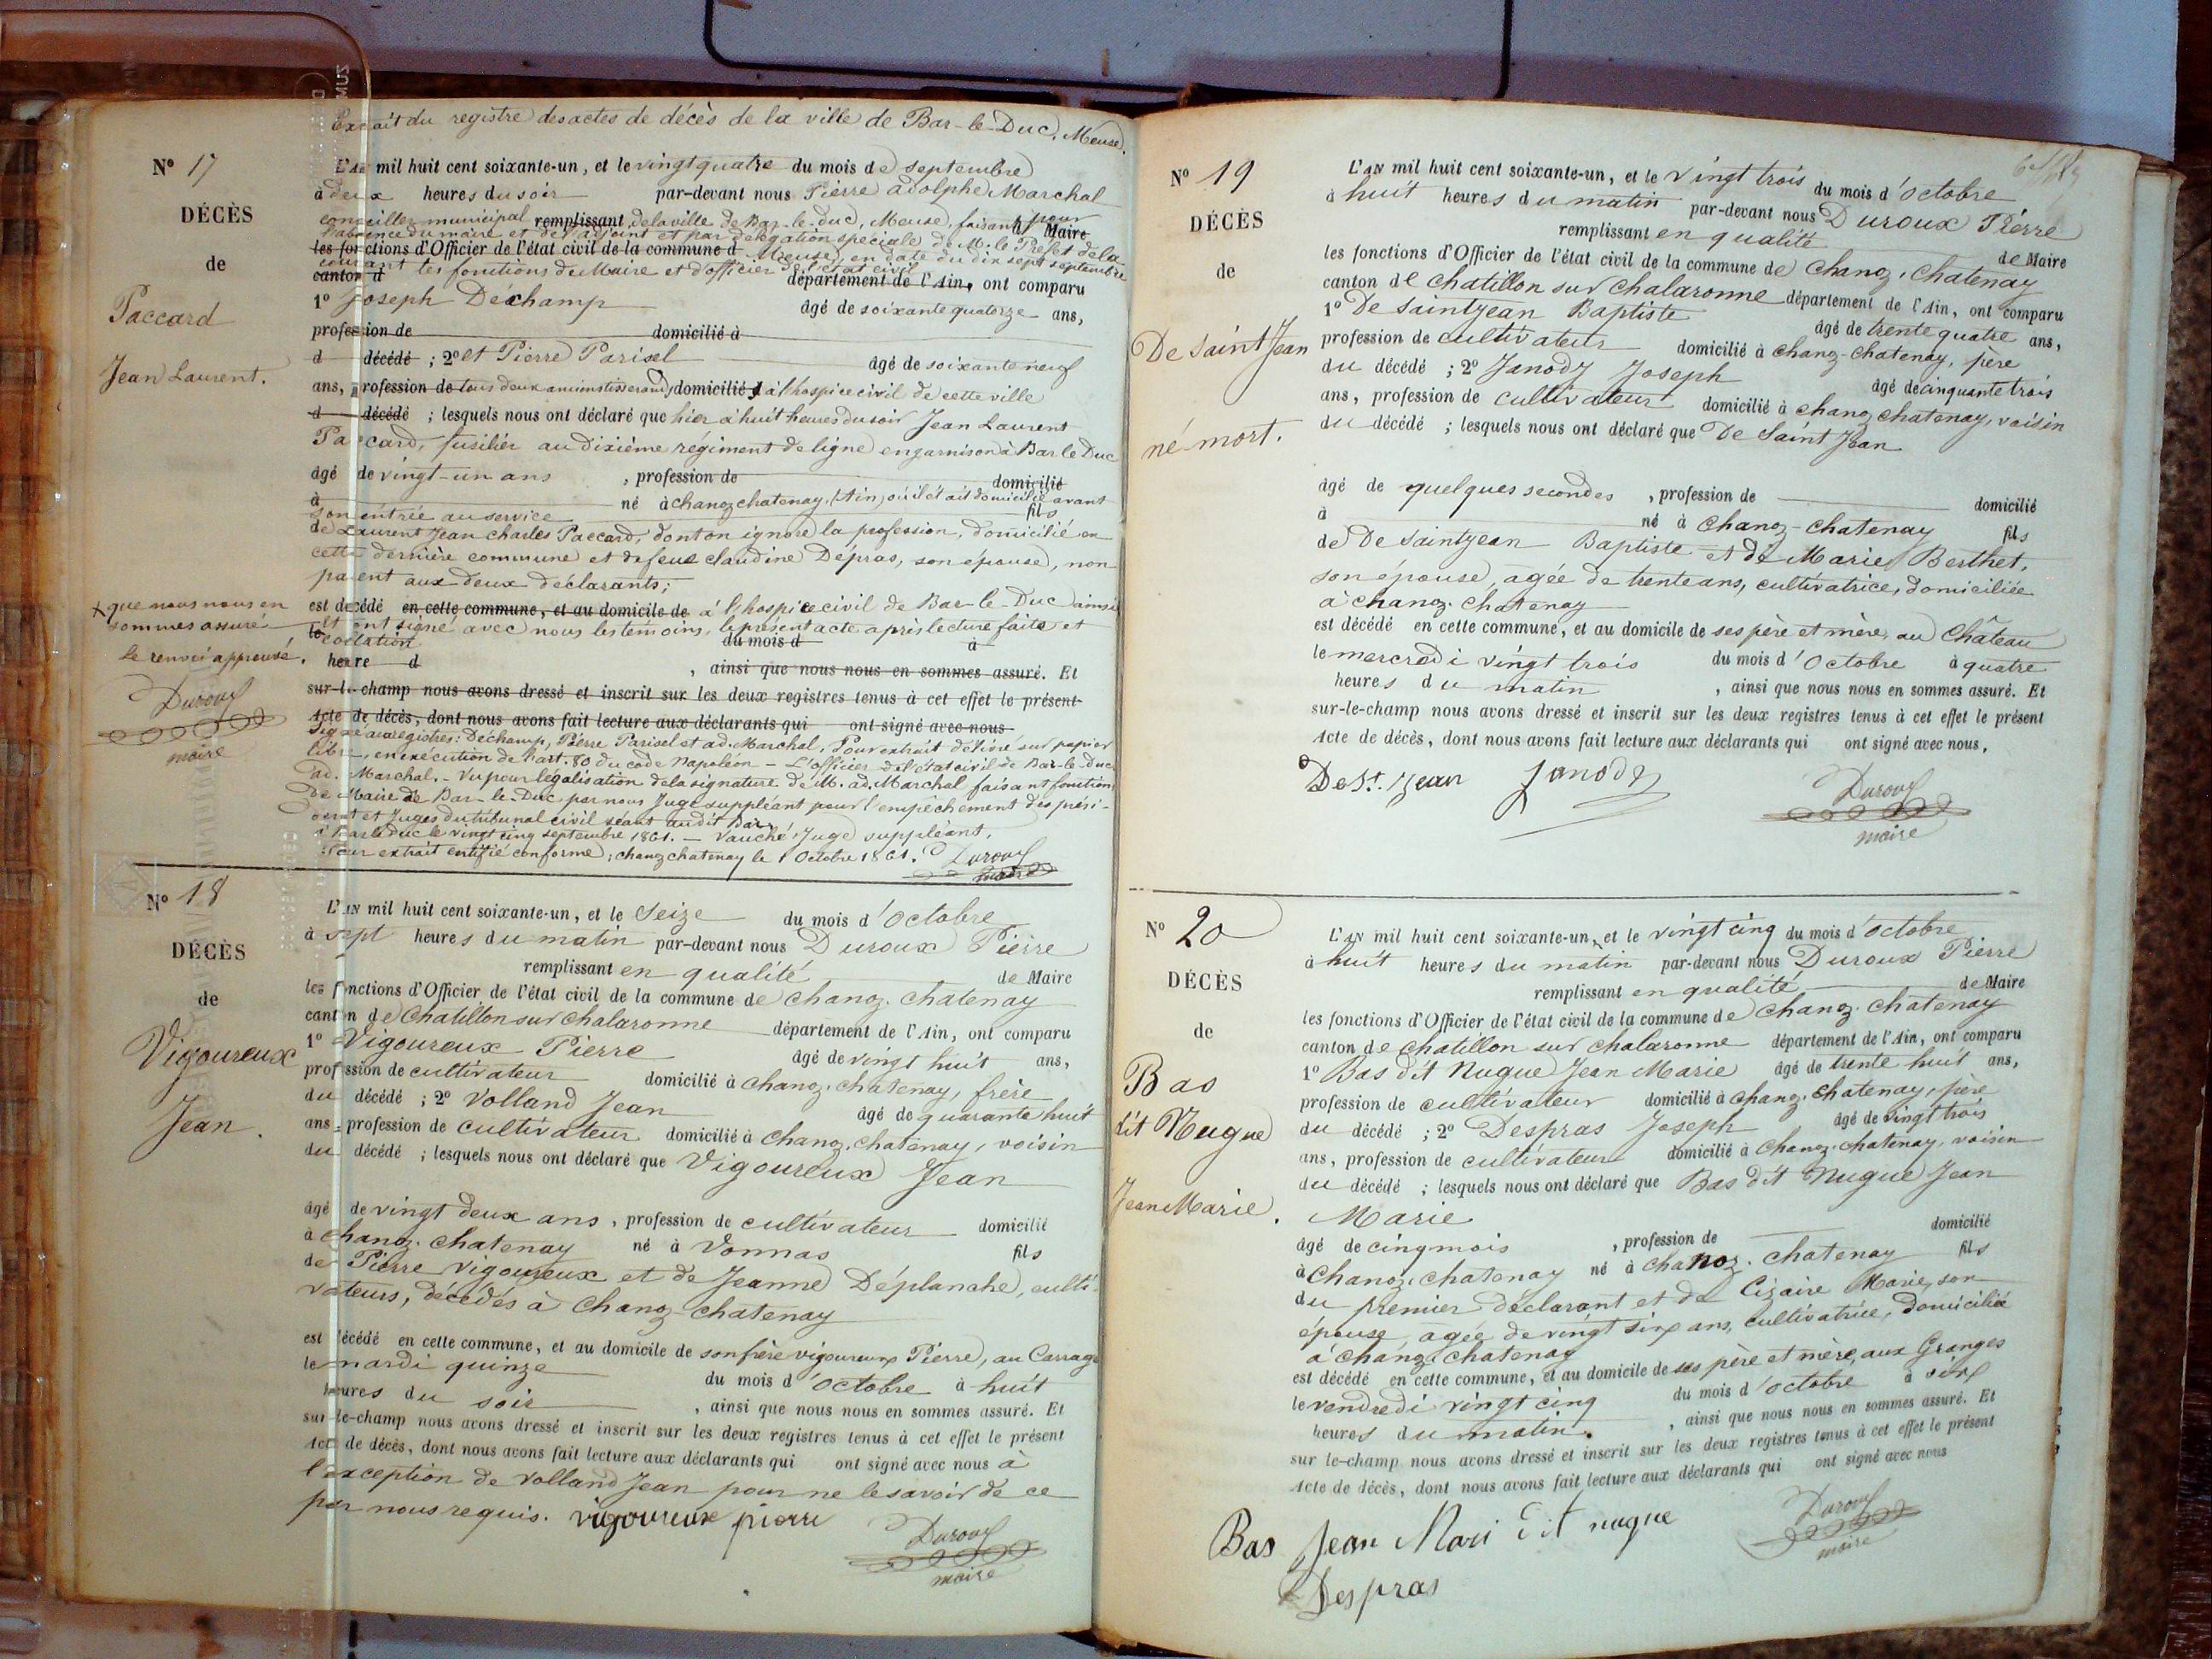 Extrait du registre des actes de décès de la ville de Bar-le-Duc, Meuse.
N° 17
DÉCÈS
de
Paccard
Jean Laurent.
L'AN mil huit cent soixante-un, et le vingt quatre du mois de septembre
à deux heures du soir par-devant nous Pierre adolphe Marchal
conseiller municipal remplissant de la ville de Bar-le-Duc, Meuse, faisant pour Maire
l'absence du maire et de l'adjoint et par délégation spéciale de M. le Préfet de la
les fonctions d'Officier de l'état civil de la commune d Meuse, en date du dix sept septembre
courant les fonctions de Maire et d'officier de l'état civil
canton d département de l'Ain, ont comparu
1° Joseph Déchamp âgé de soixante quatorze ans,
profession de domicilié à
d décédé ; 2° et Pierre Parisel âgé de soixante neuf
ans, profession de tous deux anciens tisserands, domiciliés à l'hospice civil de cette ville
d décédé ; lesquels nous ont déclaré que hier à huit heures du soir Jean Laurent
Paccard, fusilier au dixième régiment de ligne en garnison à Bar le Duc
âgé de vingt-un ans , profession de domicilié
à né à chanoz chatenay, (Ain) où il était domicilié avant
son entrée au service fils
de Laurent Jean Charles Paccard, dont on ignore la profession, domicilié en
cette dernière commune et de feue claudine Dépras, son épouse, non
parent aux deux déclarants;
est décédé en cette commune, et au domicile de à l'hospice civil de Bar-le-Duc ainsi
x que nous nous en
sommes assuré
le renvoi approuvé.
Duroux
maire
et ont signé avec nous les témoins, le présent acte après lecture faite et
collation
le du mois d à
heure d , ainsi que nous nous en sommes assuré. Et
sur-le-champ nous avons dressé et inscrit sur les deux registres tenus à cet effet le présent
Acte de décès, dont nous avons fait lecture aux déclarants qui ont signé avec nous
Signé aux registres: Déchamp, Pierre Parisel et ad. Marchal. Pour extrait délivré sur papier
libre, en exécution de l'art. 80 du code Napoléon – L'officier de l'état civil de Bar-le-Duc
ad. Marchal. – Vu pour légalisation de la signature de M. ad. Marchal faisant fonction
de Maire de Bar-le-Duc par nous Juge suppléant pour l'empêchement des prési-
dent et Juges du tribunal civil séant audit Bar
à Bar le duc le vingt cinq septembre 1861. – Vauché Juge suppléant.
Pour extrait certifié conforme; chanoz chatenay le 1 Octobre 1861. Duroux
maire
N° 18
DÉCÈS
de
Vigoureux
Jean.
L'AN mil huit cent soixante-un, et le Seize du mois d'Octobre
à sept heures du matin par-devant nous Duroux Pierre
remplissant en qualité de Maire
les fonctions d'Officier de l'état civil de la commune de chanoz. chatenay
canton de Chatillon sur chalaronne département de l'Ain, ont comparu
1° Vigoureux Pierre âgé de vingt huit ans,
profession de cultivateur domicilié à chanoz. chatenay, frère
du décédé ; 2° Volland Jean âgé de quarante huit
ans, profession de cultivateur domicilié à chanoz. chatenay, voisin
du décédé ; lesquels nous ont déclaré que Vigoureux Jean
âgé de vingt deux ans , profession de cultivateur domicilié
à chanoz. chatenay né à Vonnas fils
de Pierre Vigoureux et de Jeanne Déplanche, culti-
vateurs, décédés à chanoz-chatenay
est décédé en cette commune, et au domicile de son frère vigoureux Pierre, au Carrage
le mardi quinze du mois d'Octobre à huit
heures du soir , ainsi que nous nous en sommes assuré. Et
sur-le-champ nous avons dressé et inscrit sur les deux registres tenus à cet effet le présent
Acte de décès, dont nous avons fait lecture aux déclarants qui ont signé avec nous à
l'exception de Volland Jean pour ne le savoir de ce
par nous requis. vigoureux pierre
Duroux
maire
N° 19
DÉCÈS
de
De Saint Jean
né mort.
L'AN mil huit cent soixante-un, et le vingt trois du mois d'Octobre
à huit heures du matin par-devant nous Duroux Pierre
remplissant en qualité de Maire
les fonctions d'Officier de l'état civil de la commune de Chanoz. Chatenay
canton de Chatillon sur Chalaronne département de l'Ain, ont comparu
1° De Saintjean Baptiste âgé de trente quatre ans,
profession de cultivateur domicilié à chanoz-chatenay, père
du décédé ; 2° Janody Joseph âgé de cinquante trois
ans, profession de cultivateur domicilié à chanoz chatenay, voisin
du décédé ; lesquels nous ont déclaré que De Saint Jean
âgé de quelques secondes , profession de domicilié
à né à chanoz-chatenay fils
de De Saintjean Baptiste et de Marie Berthet,
son épouse, agée de trente ans, cultivatrice, domiciliée
à chanoz. chatenay
est décédé en cette commune, et au domicile de ses père et mère, au Château
le mercredi vingt trois du mois d'Octobre à quatre
heures du matin , ainsi que nous nous en sommes assuré. Et
sur-le-champ nous avons dressé et inscrit sur les deux registres tenus à cet effet le présent
Acte de décès, dont nous avons fait lecture aux déclarants qui ont signé avec nous,
De St. Jean Janody
Duroux
maire
N° 20
DÉCÈS
de
Bas
dit Nugue
Jean Marie.
L'AN mil huit cent soixante-un, et le vingt cinq du mois d'Octobre
à huit heures du matin par-devant nous Duroux Pierre
remplissant en qualité de Maire
les fonctions d'Officier de l'état civil de la commune de Chanoz. Chatenay
canton de chatillon sur chalaronne département de l'Ain, ont comparu
1° Bas dit Nugue Jean Marie âgé de trente huit ans,
profession de cultivateur domicilié à chanoz. chatenay, père
du décédé ; 2° Despras Joseph âgé de vingt trois
ans, profession de cultivateur domicilié à chanoz-chatenay, voisin
du décédé ; lesquels nous ont déclaré que Bas dit Nugue Jean
Marie
âgé de cinq mois , profession de domicilié
à Chanoz. chatenay né à chanoz. chatenay fils
du premier déclarant et de Cizaire Marie, son
épouse, agée de vingt six ans, cultivatrice, domiciliée
à chanoz. chatenay
est décédé en cette commune, et au domicile de ses père et mère, aux Granges
le vendredi vingt cinq du mois d'octobre à six
heures du matin. , ainsi que nous nous en sommes assuré. Et
sur le-champ nous avons dressé et inscrit sur les deux registres tenus à cet effet le présent
Acte de décès, dont nous avons fait lecture aux déclarants qui ont signé avec nous
Bas Jean Mari dit nugue
Duroux
maire
Despras